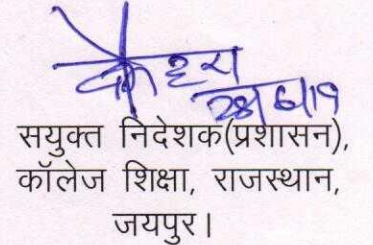 28/6/19
सयुक्त निदेशक(प्रशासन),
कॉलेज शिक्षा, राजस्थान,
जयपुर।